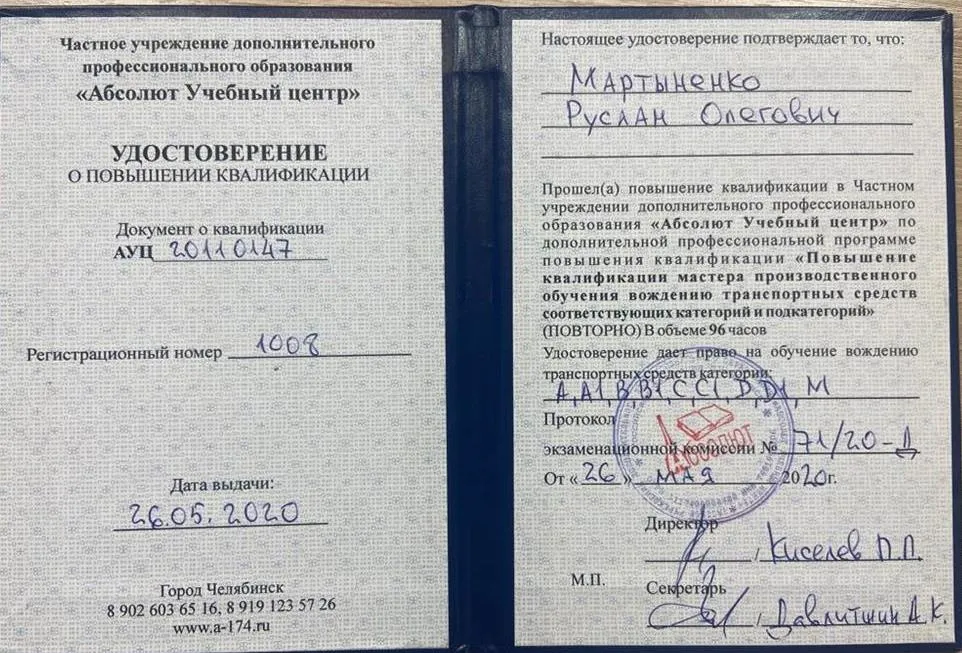 Частное учреждение дополнительного
профессионального образования
«Абсолют Учебный центр»
УДОСТОВЕРЕНИЕ
О ПОВЫШЕНИИ КВАЛИФИКАЦИИ
Документ о квалификации
АУЦ 20110147
Регистрационный номер 1008
Дата выдачи:
26.05.2020
Город Челябинск
8 902 603 65 16, 8 919 123 57 26
www.a-174.ru
Настоящее удостоверение подтверждает то, что:
Мартыненко
Руслан Олегович
Прошел(а) повышение квалификации в Частном
учреждении дополнительного профессионального
образования «Абсолют Учебный центр» по
дополнительной профессиональной программе
повышения квалификации «Повышение
квалификации мастера производственного
обучения вождению транспортных средств
соответствующих категорий и подкатегорий»
(ПОВТОРНО) В объеме 96 часов
Удостоверение дает право на обучение вождению
транспортных средств категории:
A, A1, B, B1, C, C1, D, D1, M
Протокол
экзаменационной комиссии № 71/20-Д
От «26» мая 2020г.
Абсолют
Директор
Киселев П.П.
М.П.
Секретарь
Давлитшин А.К.